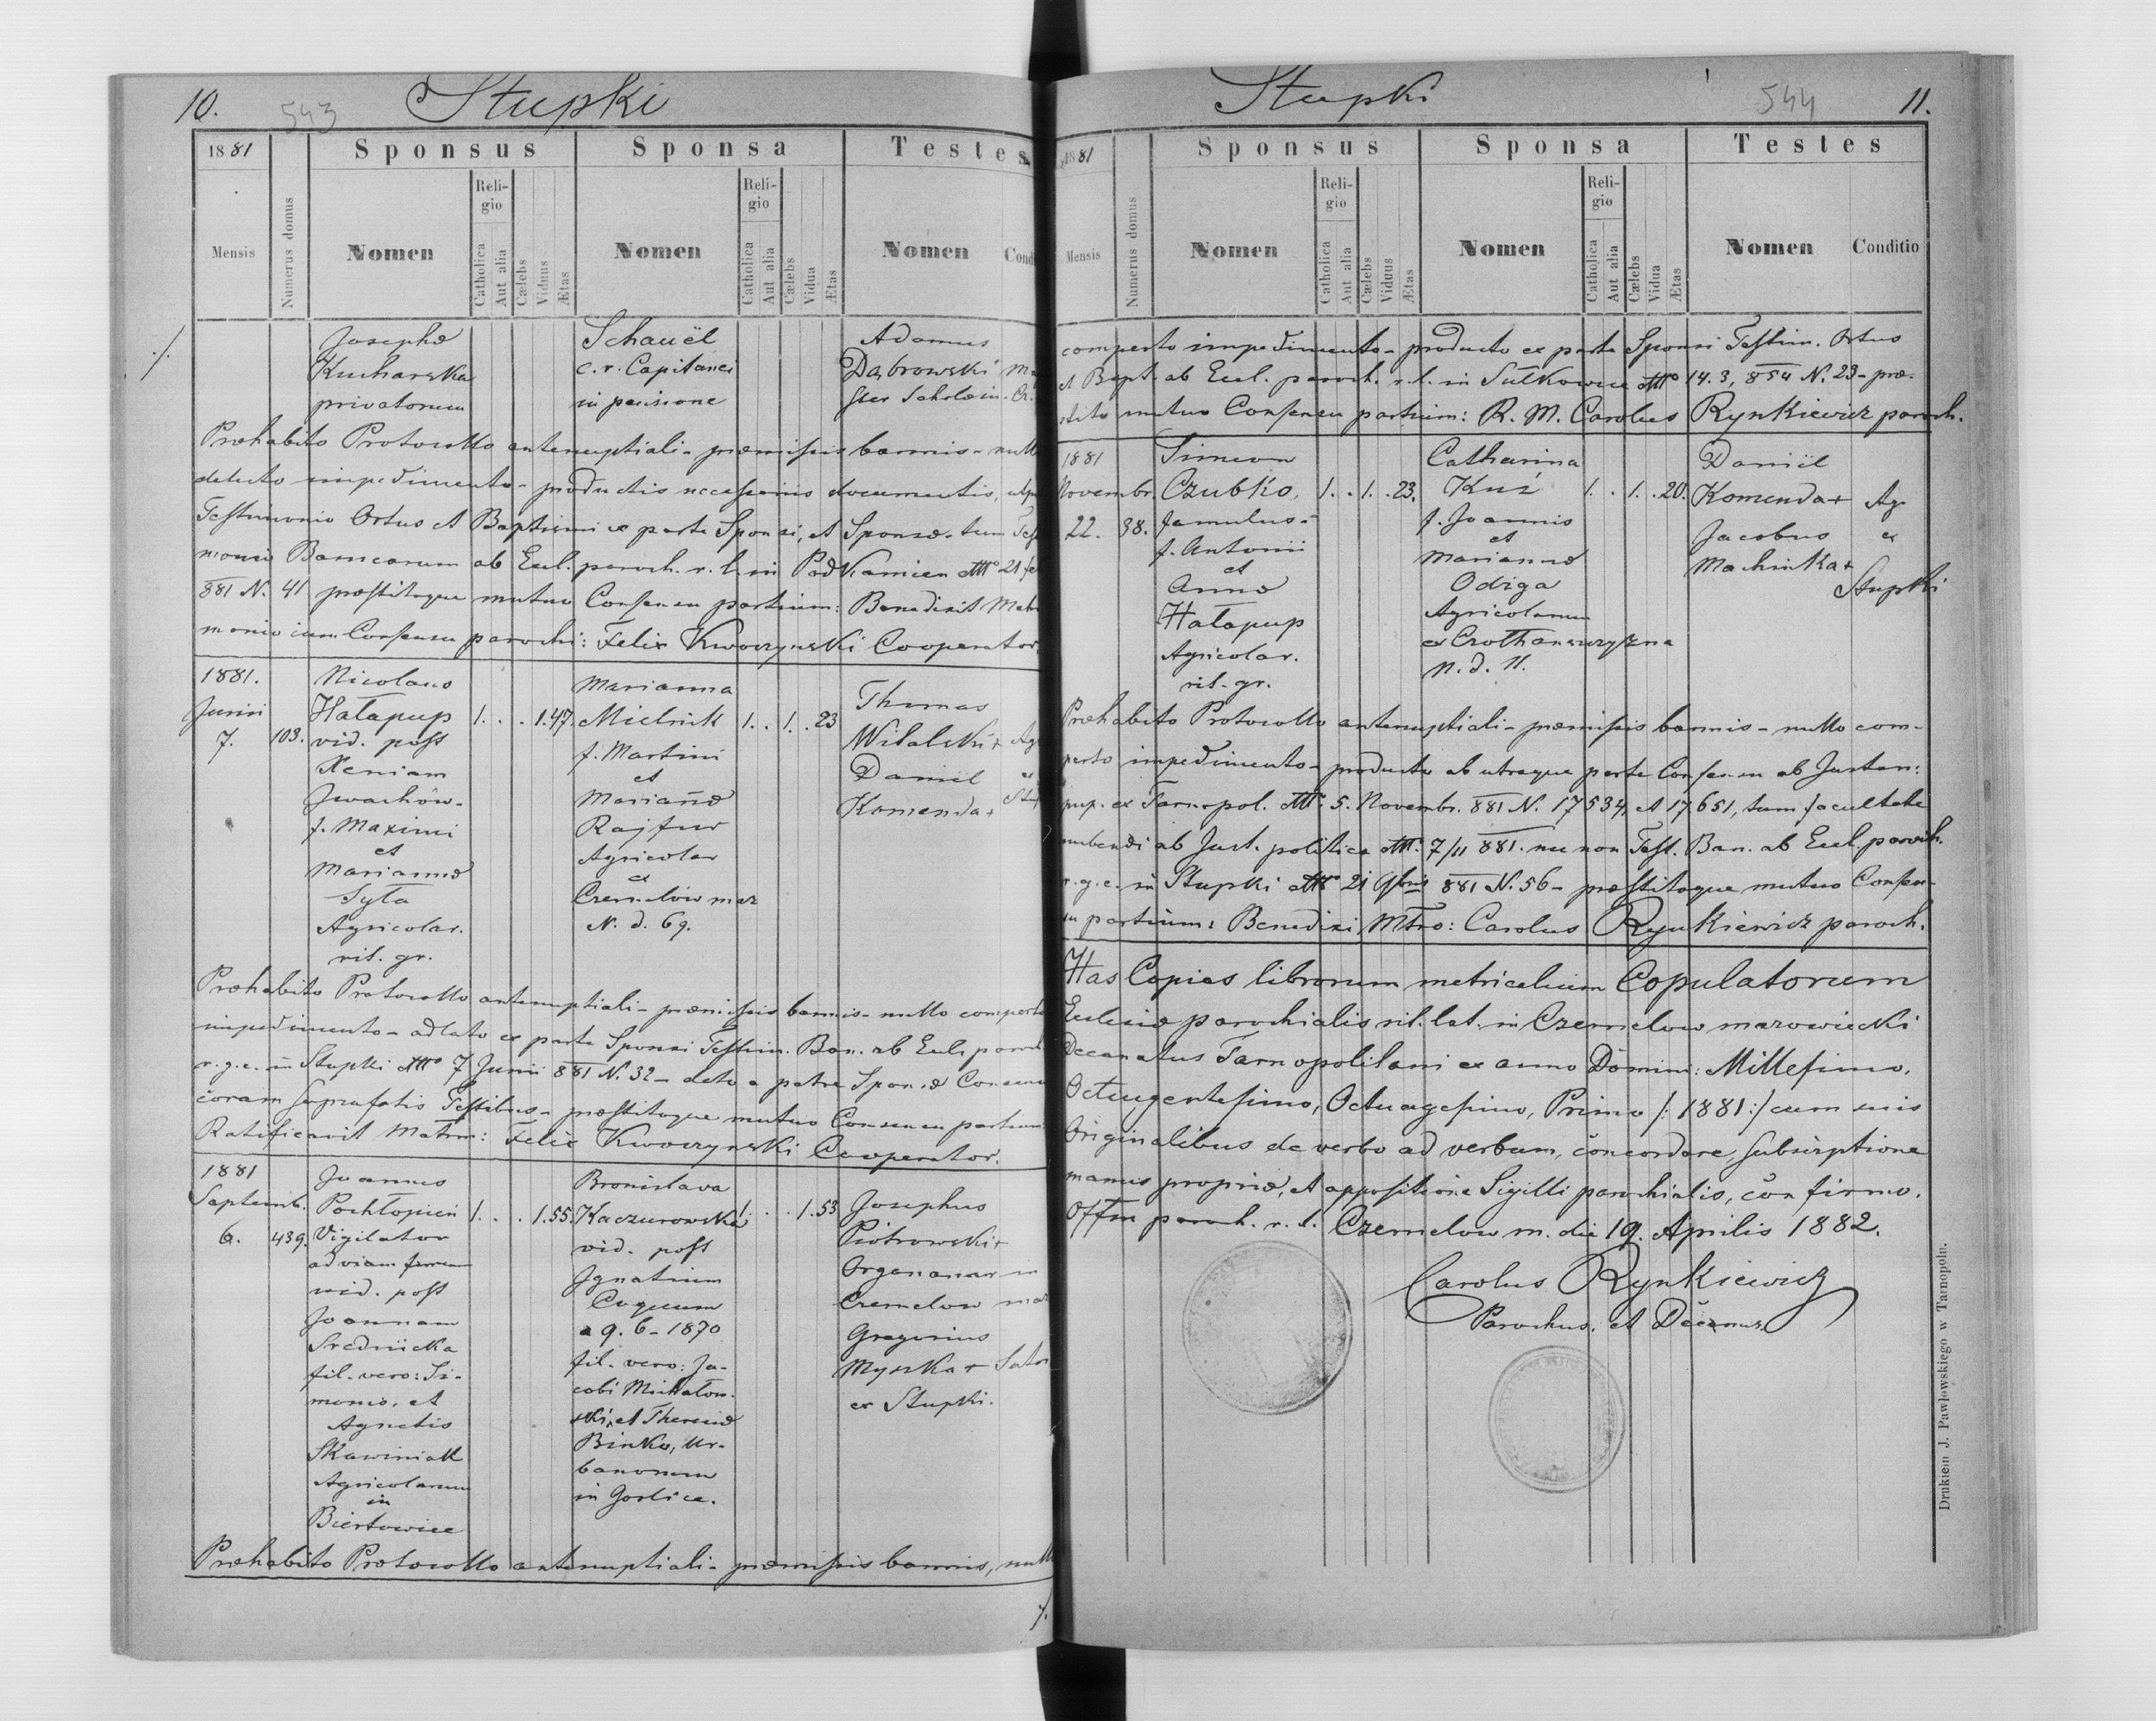 10.
543
Stupki
1881
Sponsus
Sponsa
Testes
Mensis
Numerus domus
Nomen
Religio
Catholica
Aut alia
Cælebs
Viduus
Ætas
Nomen
Religio
Catholica
Aut alia
Cælebs
Vidua
Ætas
Nomen
Josephæ
Kucharska
privatorum
Schauël
c. r. Capitanei
in pensione
Adamus
Dąbrowski
Præhabito Protocollo antenuptiali - præmissis bannis - nullo
detecto impedimento - productis necessariis documentis,
Testimonio Ortus et Baptismi ex parte Sponsi, et Sponsæ - tum
monio Bannorum ab Eccl. paroch. r. l. in Podkamien dtto 21
881 N. 41 præstitoque mutuo Consensu partium: Benedixit
monio cum Consensu parochi: Felix Kwoczynski Cooperator
1881.
Junii
7.
103.
Nicolaus
Hałapup
vid. post
Xeniam
Iwachów -
f. Maximi
et
Mariannæ
Syta
Agricolar.
rit. gr.
1. . . 1. 47.
Marianna
Mielnik
f. Martini
et
Mariañæ
Rajfur
Agricolar
ex
Czernelów maz
N. d. 69.
1. . 1. . 23
Thomas
Witalski +
Daniel
Komenda +
Præhabito Protocollo antenuptiali - præmissis bannis - nullo comperto
impedimento - adlato ex parte Sponsi Testim. Ban. ab Eccl. paroch
r. g. c. in Stupki dtto 7 Junii 881 N. 32 - dato a patre Sponsæ Consensu
coram suprafatis Testibus - præstitoque mutuo Consensu partium
Ratificavit Matrm: Felix Kwoczynski Cooperator.
1881
Septemb.
6.
439.
Joannes
Pochłopień
Vigilator
ad viam ferream
vid. post
Joannam
Srednicka
fil. vero: Si-
monis, et
Agnetis
Skawiniak
Agricolarum
in
Biertowice
1. . . 1. 55.
Bronislava
Kaczurowska
vid. post
Ignatium
Coquum
a 9. 6 - 1870
fil. vero: Ja-
cobi Michałow-
ski, et Theresiæ
Binko, Ur-
banorum
in Gorlice.
1. . . 1. 53
Josephus
Piotrowski +
Organarius
Czernelow
Gregorius
Myszka +
ex Stupki.
Præhabito Protocollo antenuptiali - præmissis bannis,
Stupki
544
11.
1881
Sponsus
Sponsa
Testes
Mensis
Numerus domus
Nomen
Religio
Catholica
Aut alia
Cælebs
Viduus
Ætas
Nomen
Religio
Catholica
Aut alia
Cælebs
Vidua
Ætas
Nomen
Conditio
comperto impedimento - producto ex parte Sponsi Testim. Ortus
et Bapt. ab Eccl. paroch. r. l. in Sułkowice dtto 14. 3. 854 N. 23 - præ-
stito mutuo Consensu partium: R. M. Carolus Rynkiewicz paroch.
1881
Novembr.
22.
38.
Simeon
Czubko,
famulus -
f. Antonii
et
Annæ
Hałapup
Agricolar.
rit. gr.
1. . 1. . 23.
Catharina
Kuź
f. Joannis
et
Mariannæ
Odiga
Agricolarum
n. d. 11.
1. . 1. . 20.
Daniël
Komenda +
Jacobus
Machinka +
Ag.
ex
Stupki
Præhabito Protocollo antenuptiali - præmissis bannis - nullo com-
perto impedimento - producto ab utraque parte Consensu ab Instan:
pup. ex Tarnopol. dtto. 5. Novembr. 881 N. 17534, et 17651, tum facultate
nubendi ab Inst. politica dtto. 7/11 881. nec non Test. Ban. ab Eccl. paroch.
r. g. c. in Stupki dtto 21 9bris 881 N. 56 - præstitoque mutuo Consen-
su partium: Benedixi Mtro: Carolus Rynkiewicz paroch.
Has Copias librorum metricalium Copulatorum
Ecclesiæ parochialis rit. lat. in Czernelow mazowiecki
Decanatus Tarnopolitani ex anno Domini: Millesimo.
Octingentesimo, Octuagesimo, Primo /: 1881 :/ cum suis
Originalibus de verbo ad verbum, concordare, subscriptione
manus propriæ, et appositione Sigilli parochialis, confirmo.
Offm paroch. r. l. Czernelow m. die 19. Aprilis 1882.
Carolus Rynkiewicz
Parochus, et Decanus.
Drukiem J. Pawłowskiego w Tarnopolu.